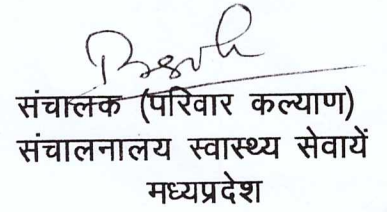 संचालक (परिवार कल्याण)
संचालनालय स्वास्थ्य सेवायें
मध्यप्रदेश